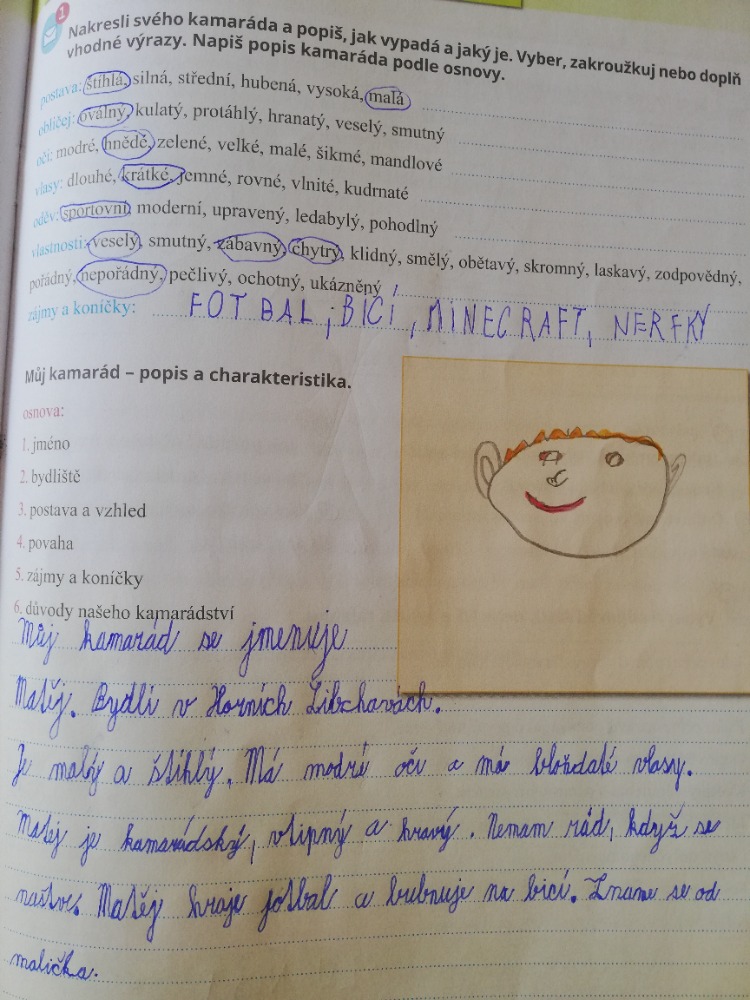 1
Nakresli svého kamaráda a popiš, jak vypadá a jaký je. Vyber, zakroužkuj nebo doplň
vhodné výrazy. Napiš popis kamaráda podle osnovy.
postava: štíhlá, silná, střední, hubená, vysoká, malá
obličej: oválný, kulatý, protáhlý, hranatý, veselý, smutný
oči: modré, hnědé, zelené, velké, malé, šikmé, mandlové
vlasy: dlouhé, krátké, jemné, rovné, vlnité, kudrnaté
oděv: sportovní, moderní, upravený, ledabylý, pohodlný
vlastnosti: veselý, smutný, zábavný, chytrý, klidný, smělý, obětavý, skromný, laskavý, zodpovědný,
pořádný, nepořádný, pečlivý, ochotný, ukázněný
zájmy a koníčky: FOTBAL, BICÍ, MINECRAFT, NERFKY
Můj kamarád – popis a charakteristika.
osnova:
1. jméno
2. bydliště
3. postava a vzhled
4. povaha
5. zájmy a koníčky
6. důvody našeho kamarádství
Můj kamarád se jmenuje
Matěj. Bydlí v Horních Libchavách.
Je malý a štíhlý. Má modré oči a má bloňdaté vlasy.
Matěj je kamarádský, vtipný a hravý. Nemam rád, když se
naštve. Matěj hraje fotbal a bubnuje na bicí. Zname se od
malička.